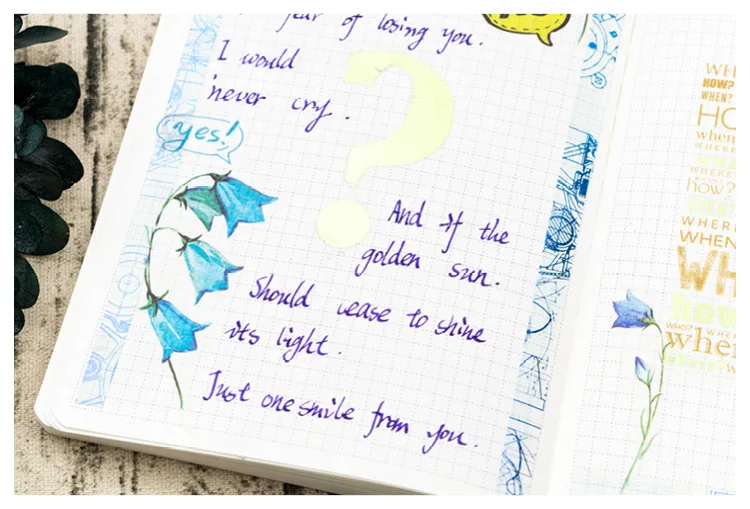 fear of losing you.
I would
never cry.
yes!
And if the
golden sun.
Should cease to shine
its light.
Just one smile from you.
?
WH
HOW?
WHEN?
HO
when
WHERE
how?
WHERE
WHEN
WH
how
WHO? WHERE
when